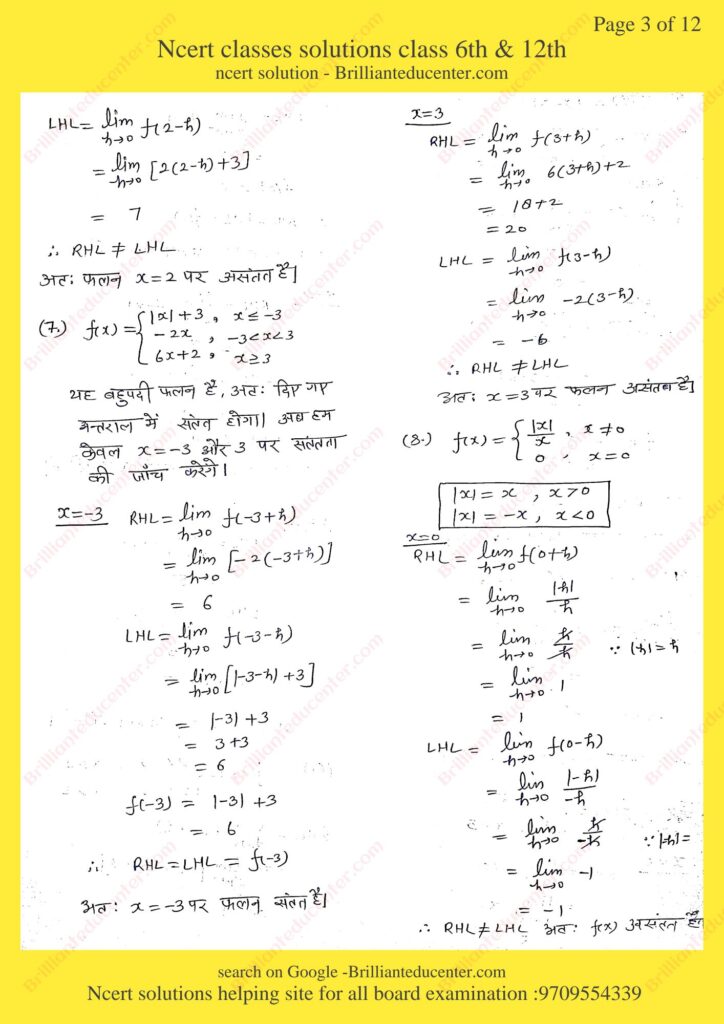 Page 3 of 12
Ncert classes solutions class 6th & 12th
ncert solution - Brillianteducenter.com
LHL = lim f(2-h)
h→0
= lim [2(2-h)+3]
h→0
= 7
∴ RHL ≠ LHL
अतः फलन x=2 पर असंतत है।
(7.) f(x) = { |x|+3, x≤-3
-2x, -3<x<3
6x+2, x≥3
यह बहुपदी फलन है, अतः दिए गए
अन्तराल में संतत होगा। अब हम
केवल x=-3 और 3 पर संततता
की जाँच करेंगे।
x=-3 RHL = lim f(-3+h)
h→0
= lim [-2(-3+h)]
h→0
= 6
LHL = lim f(-3-h)
h→0
= lim [|-3-h|+3]
h→0
= |-3|+3
= 3+3
= 6
f(-3) = |-3|+3
= 6
∴ RHL = LHL = f(-3)
अतः x=-3 पर फलन संतत है।
x=3
RHL = lim f(3+h)
h→0
= lim 6(3+h)+2
h→0
= 18+2
= 20
LHL = lim f(3-h)
h→0
= lim -2(3-h)
h→0
= -6
∴ RHL ≠ LHL
अतः x=3 पर फलन असंतत है।
(8.) f(x) = { |x|/x, x≠0
0, x=0
|x| = x, x>0
|x| = -x, x<0
x=0
RHL = lim f(0+h)
h→0
= lim |h|/h
h→0
= lim h/h ∵ |h|=h
h→0
= lim 1
h→0
= 1
LHL = lim f(0-h)
h→0
= lim |-h|/-h
h→0
= lim h/-h ∵ |-h|=
h→0
= lim -1
h→0
= -1
∴ RHL ≠ LHL अतः f(x) असंतत है।
search on Google -Brillianteducenter.com
Ncert solutions helping site for all board examination :9709554339